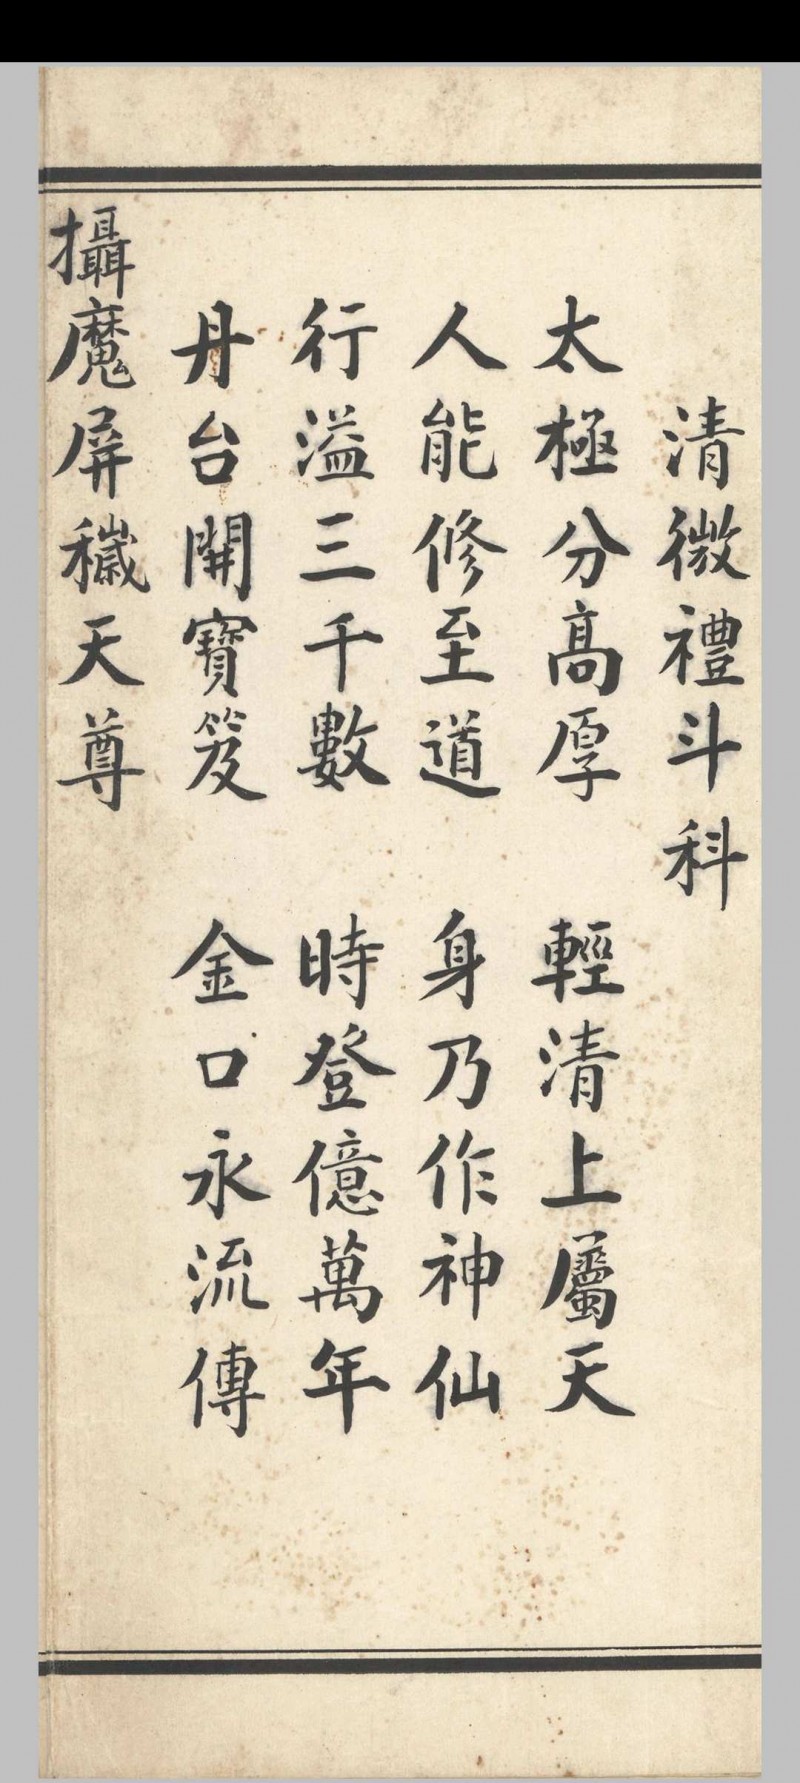 清微禮斗科
太極分高厚　輕清上屬天
人能修至道　身乃作神仙
行溢三千數　時登億萬年
丹台開寶笈　金口永流傳
攝魔屏穢天尊